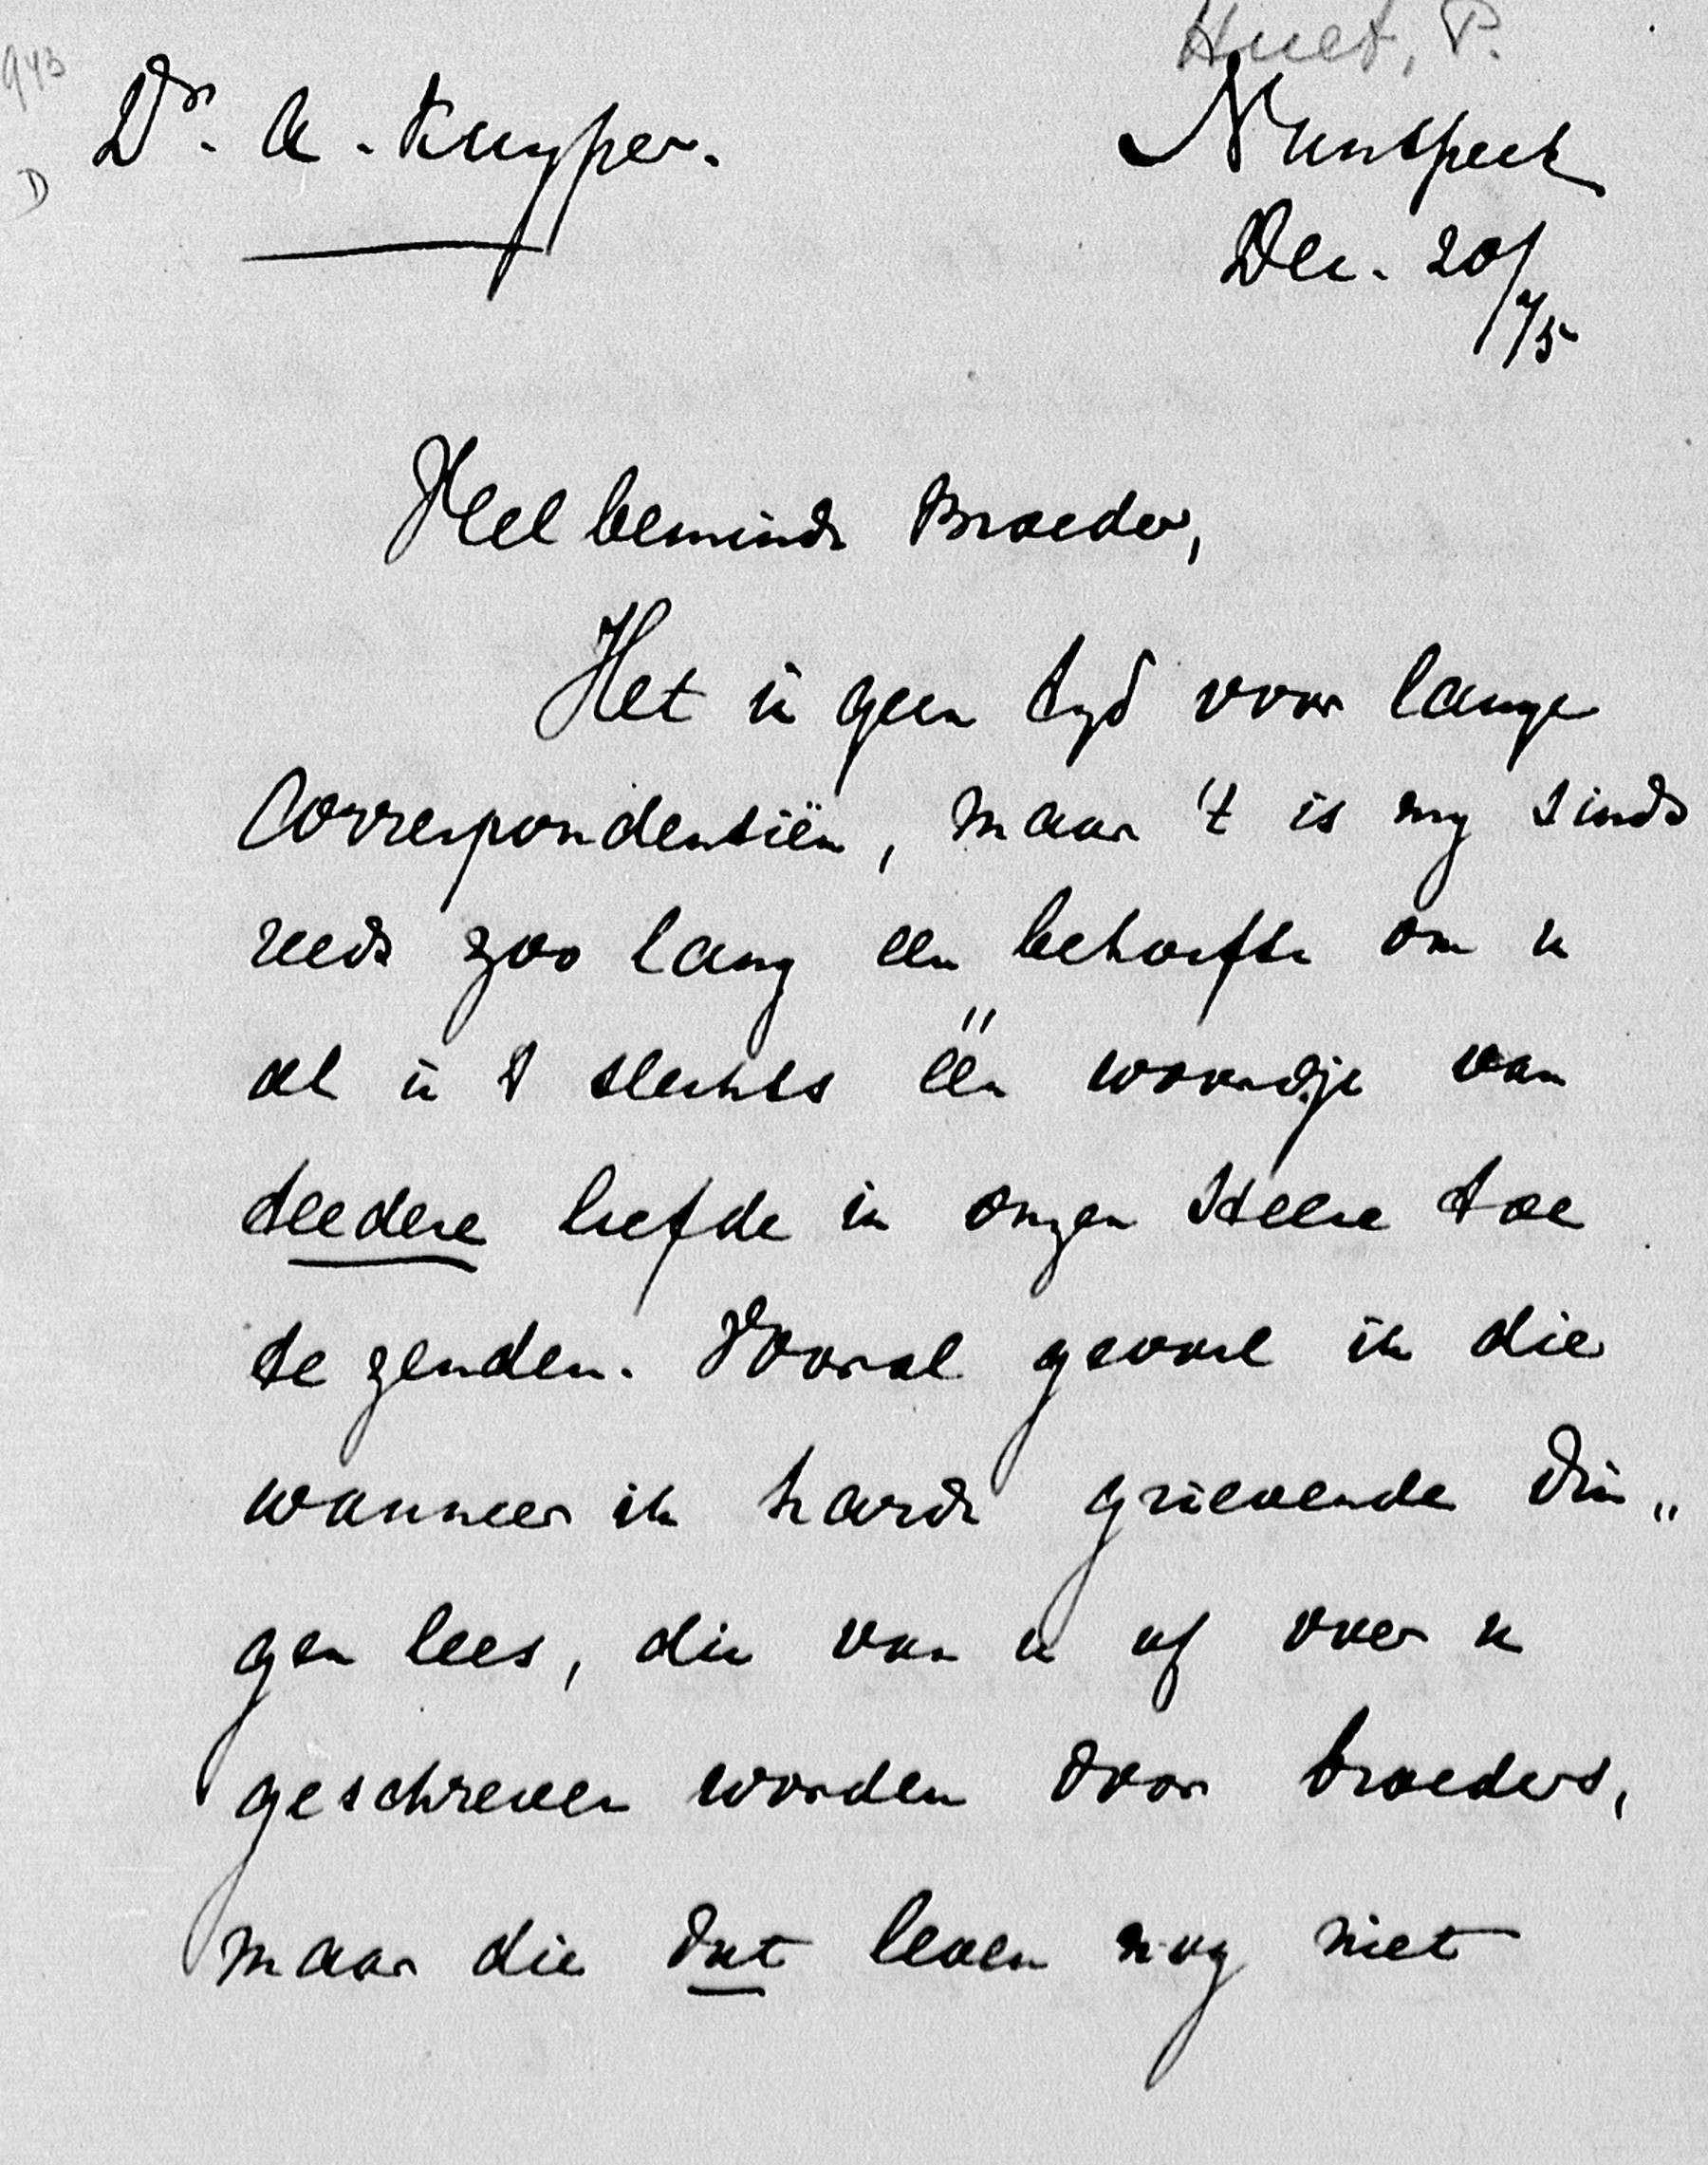 Huet, P.
943
Dr. A. Kuyper.
Nunspeet
D
Dec. 20/75
Veel beminde Broeder,
Het is geen tyd voor lange
Correspondentiën, maar 't is my sinds
reeds zoo lang een behoefte om u
al is 't slechts één woordje van
teedere liefde in onzen Heere toe
te zenden. Vooral gevoel ik die
wanneer ik harde grievende din„
gen lees, die van u of over u
geschreven worden door broeders,
maar die dat leven nog niet